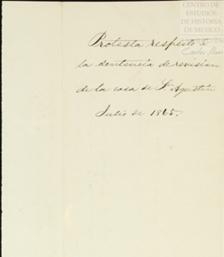 CENTRO DE
ESTUDIOS
DE HISTORIA
DE MEXICO
Carlos Slim
Protesta respecto á
la sentencia de revision
de la casa de S. Agustin
Julio de 1865.